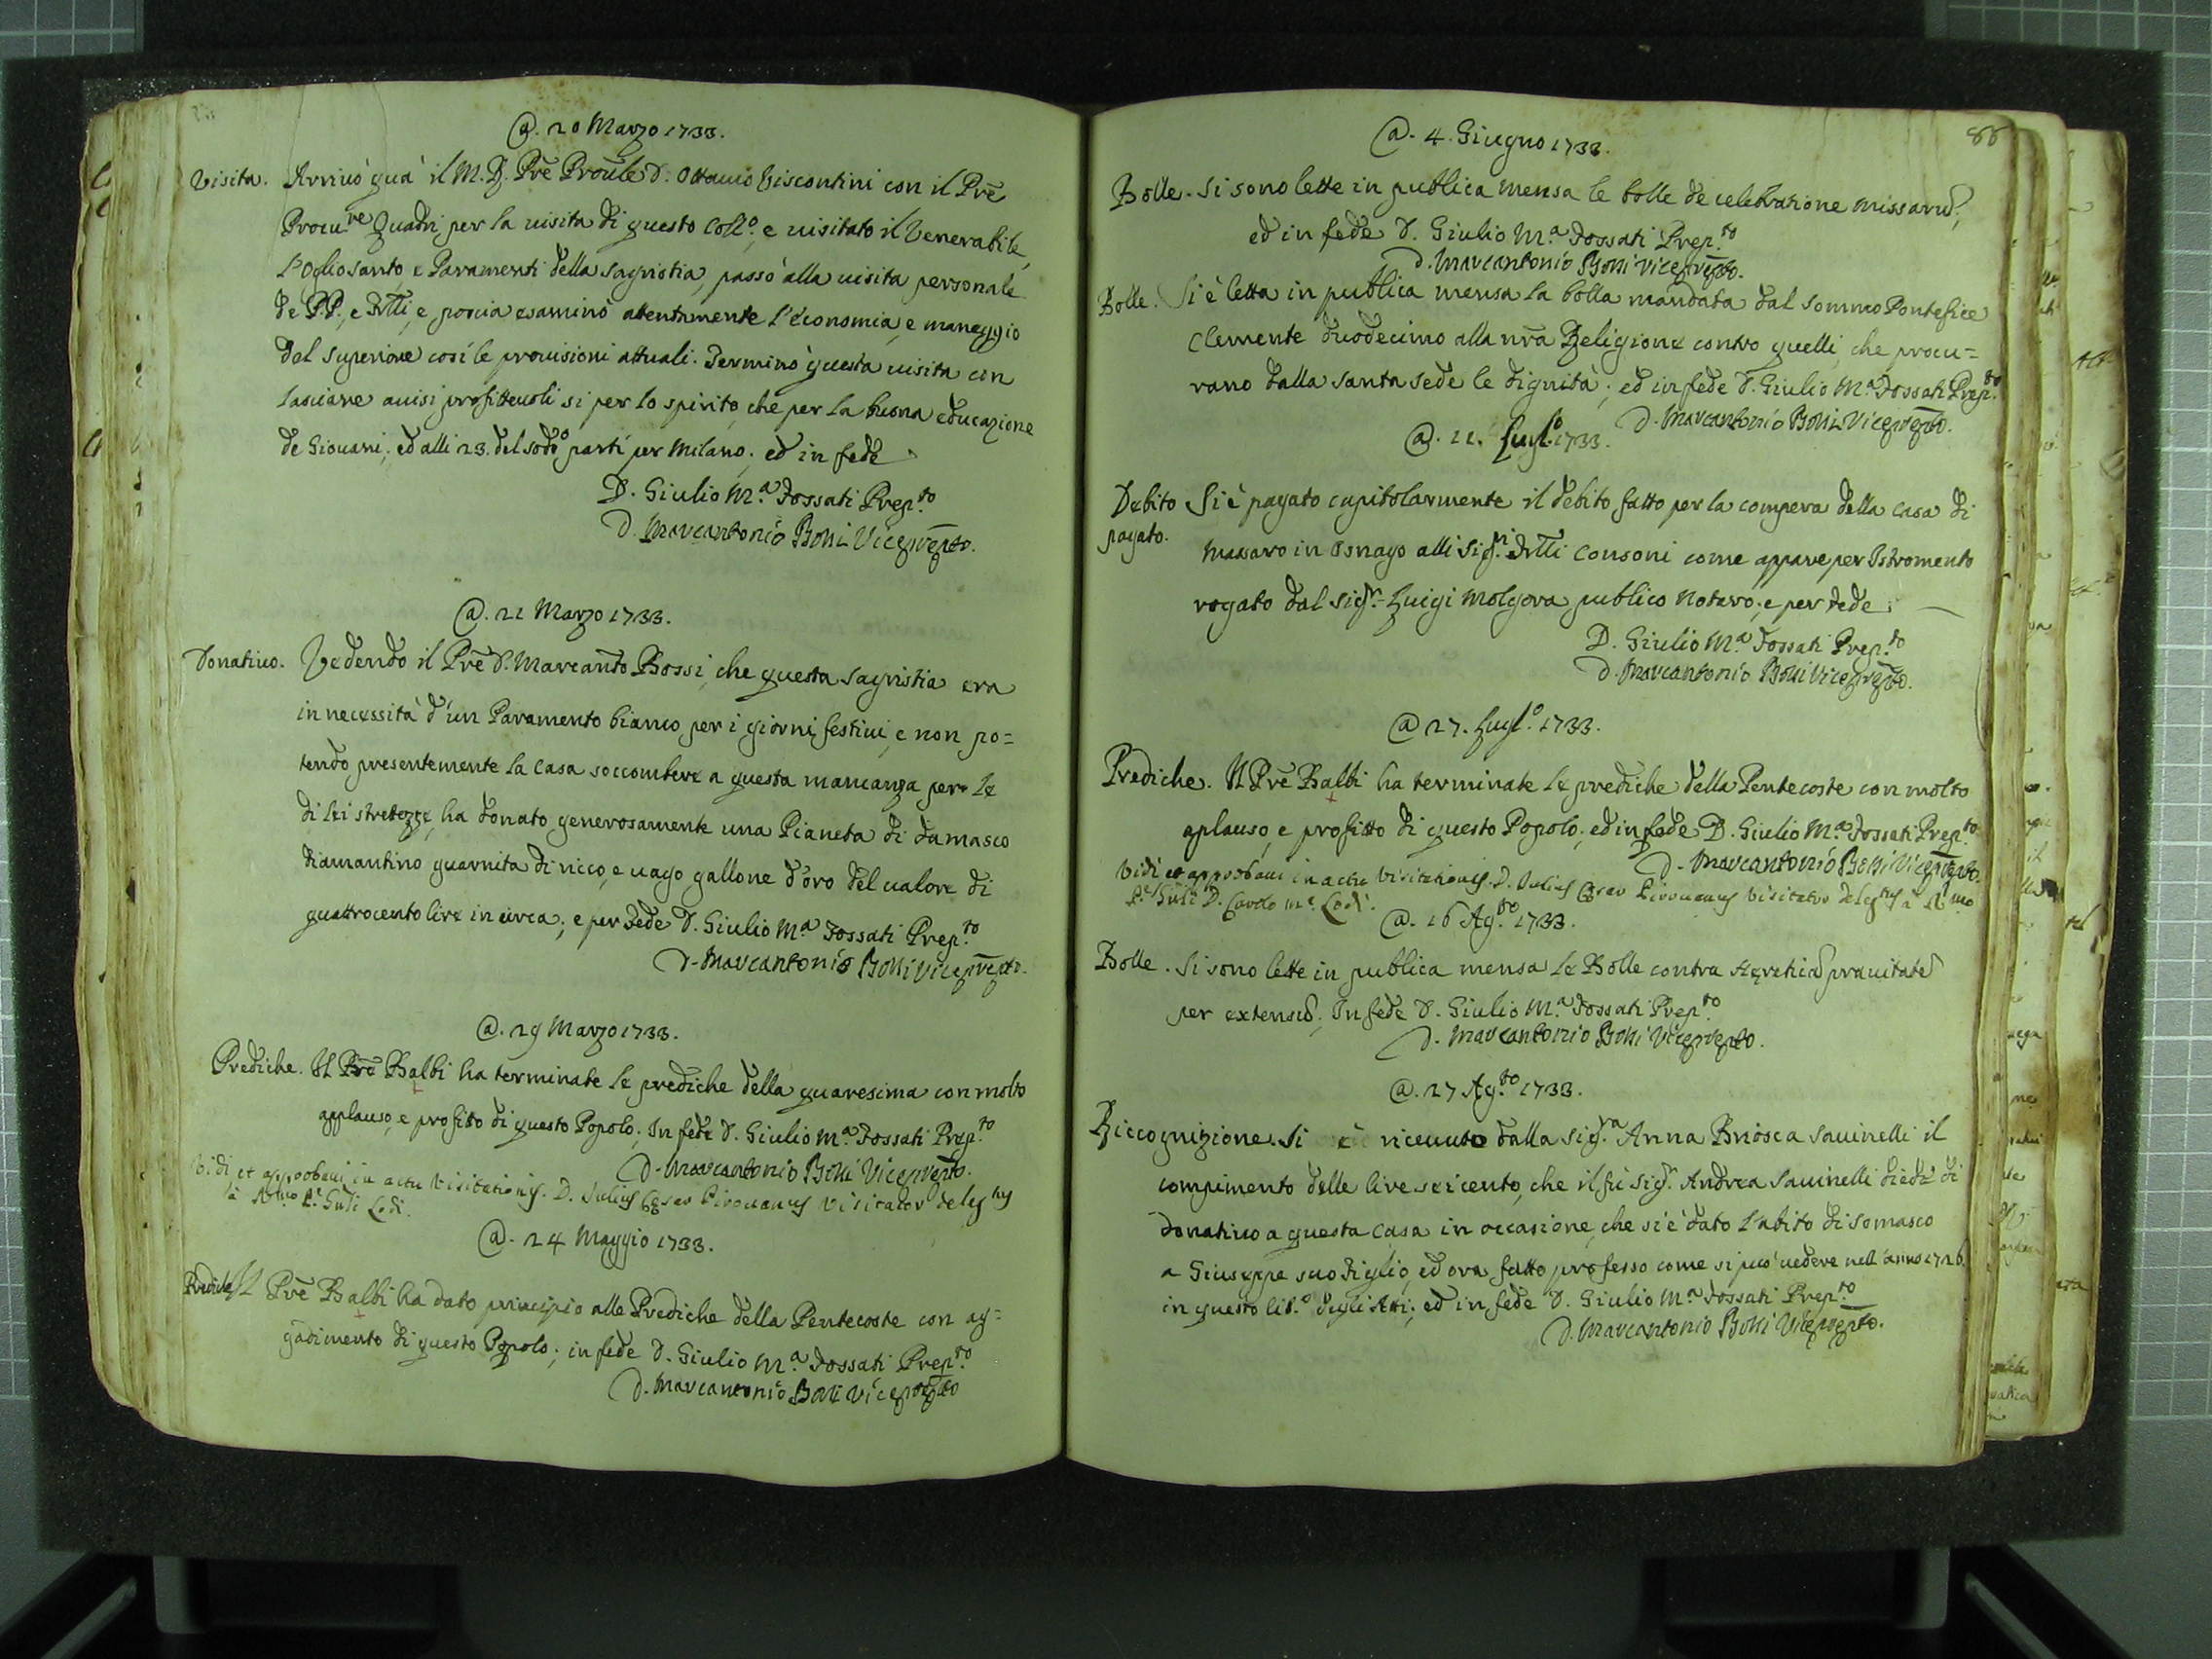 @. 20 Marzo 1733.
Visita. Arrivò quà il M. R. Prē Proūle D. Ottavio Viscontini con il Prē
Procu.re Quadri per la visita di questo Coll.o, e visitato il Venerabile,
l'Oglio santo, e Paramenti della sagristia, passò alla visita personale
de PP., e Frlli, e poscia esaminò attentamente l'economia, e maneggio
del superiore così le provisioni attuali. Terminò questa visita con
lasciare avisi profittevoli sì per lo spirito, che per la buona educazione
de Giovani, ed alli 23. del sodo partì per Milano; ed in fede
D. Giulio M.a Fossati Prep.to
D. Marcantonio Bossi Viceprepto.
@. 21 Marzo 1733.
Donativo. Vedendo il Prē D. Marcanto Bossi, che questa sagristia era
in necessità d'un Paramento bianco per i giorni festivi, e non po=
tendo presentemente la Casa soccombere a questa mancanza per le
di lei strettezze, ha donato generosamente una Pianeta di damasco
diamantino guarnita di ricco, e vago gallone d'oro del valore di
quattrocento lire in circa; e per Fede D. Giulio M.a Fossati Prep.to
D. Marcantonio Bossi Viceprepto.
@. 29 Marzo 1733.
Prediche. Il Prē Balbi ha terminate le prediche della quaresima con molto
applauso, e profitto di questo Popolo; In fede D. Giulio M.a Fossati Prep.to
D. Marcantonio Bossi Viceprepto.
Vidi et approbavi in actu Visitationis. D. Julius Cæsar Pirovanus Visitator delegtus
à R.mo P. Gnli Lodi.
@. 24 Maggio 1733.
Prediche Il Prē Balbi ha dato principio alle Prediche della Pentecoste con ag=
gradimento di questo Popolo; in fede D. Giulio M.a Fossati Prep.to
D. Marcantonio Bossi Viceprepto
88
@. 4. Giugno 1733.
Bolle. Si sono lette in publica mensa le bolle de celebratione missarū;
ed in fede D. Giulio M.a Fossati Prep.to
D. Marcantonio Bossi Viceprepto.
Bolle. Si è letta in publica mensa la bolla mandata dal sommo Pontefice
Clemente duodecimo alla nrā Religione contro quelli, che procu=
rano dalla santa sede le dignità; ed in fede D. Giulio M.a Fossati Prep.to
D. Marcantonio Bossi Viceprepto.
@. 11. Lugl.o 1733.
Debito Si è pagato capitolarmente il debito fatto per la compera della casa di
pagato. Massaro in Osnago alli Sig.ri Frlli Consoni come appare per Istromento
rogato dal Sig.r Luigi Molgora publico Notaro; e per Fede.
D. Giulio M.a Fossati Prep.to
D. Marcantonio Bossi Viceprepto.
@ 27. Lugl.o 1733.
Prediche. Il Prē Balbi ha terminate le prediche della Pentecoste con molto
aplauso, e profitto di questo Popolo; ed in fede D. Giulio M.a Fossati Prep.to
D. Marcantonio Bossi Viceprepto.
Vidi et approbavi in actu Visitationis. D. Julius Cæsar Pirovanus Visitator Delegtus à R.mo
P. Gnli D. Carolo M.a Lodi.
@. 16 Ag.to 1733.
Bolle. Si sono lette in publica mensa le Bolle contra hæreticā pravitatē
per extensū; In fede D. Giulio M.a Fossati Prep.to
D. Marcantonio Bossi Viceprepto.
@. 27 Ag.to 1733.
Riccognizione. Si è ricevuto dalla Sig.a Anna Briosca Savinelli il
compimento delle lire seicento, che il fù Sig.r Andrea Savinelli diede di
donativo a questa Casa in occasione, che si è dato l'abito di Somasco
a Giuseppe suo Figlio, ed ora fatto professo come si può vedere nell'anno 1726.
in questo lib.o degli Atti; ed in fede D. Giulio M.a Fossati Prep.to
D. Marcantonio Bossi Viceprepto.